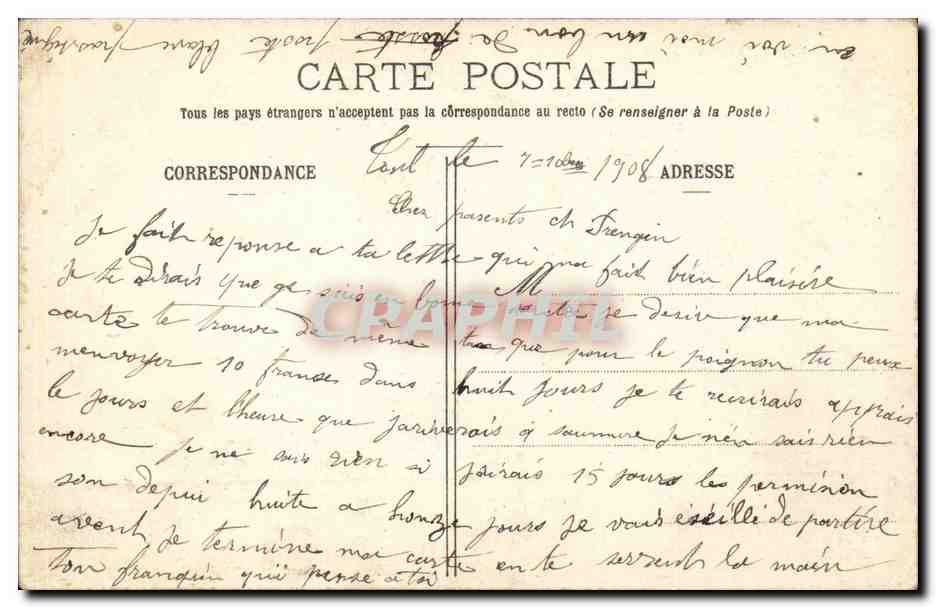 en voi moi un bon de poste blanc
CARTE POSTALE
Tous les pays étrangers n'acceptent pas la correspondance au recto (Se renseigner à la Poste)
CORRESPONDANCE
ADRESSE
le 7-10 1908
Cher parents
Je fait reponse a ta lettre qui ma fait bien plaisire
M
je te dirais que je suis en bone je desire que ma
carte te trouve de même que pour le poignon tu peux
menvoyer 10 francs dans huit jours je te recrirais apprais
le jours et lheure que jariverais a saumure je nén sais rien
encore je ne sais rien si jairais 15 jours les permision
son depui huite a honze jours je vais de partire
avent je termine ma carte en te serrent la main
ton franquin qui pense a toi
CPAPHIL